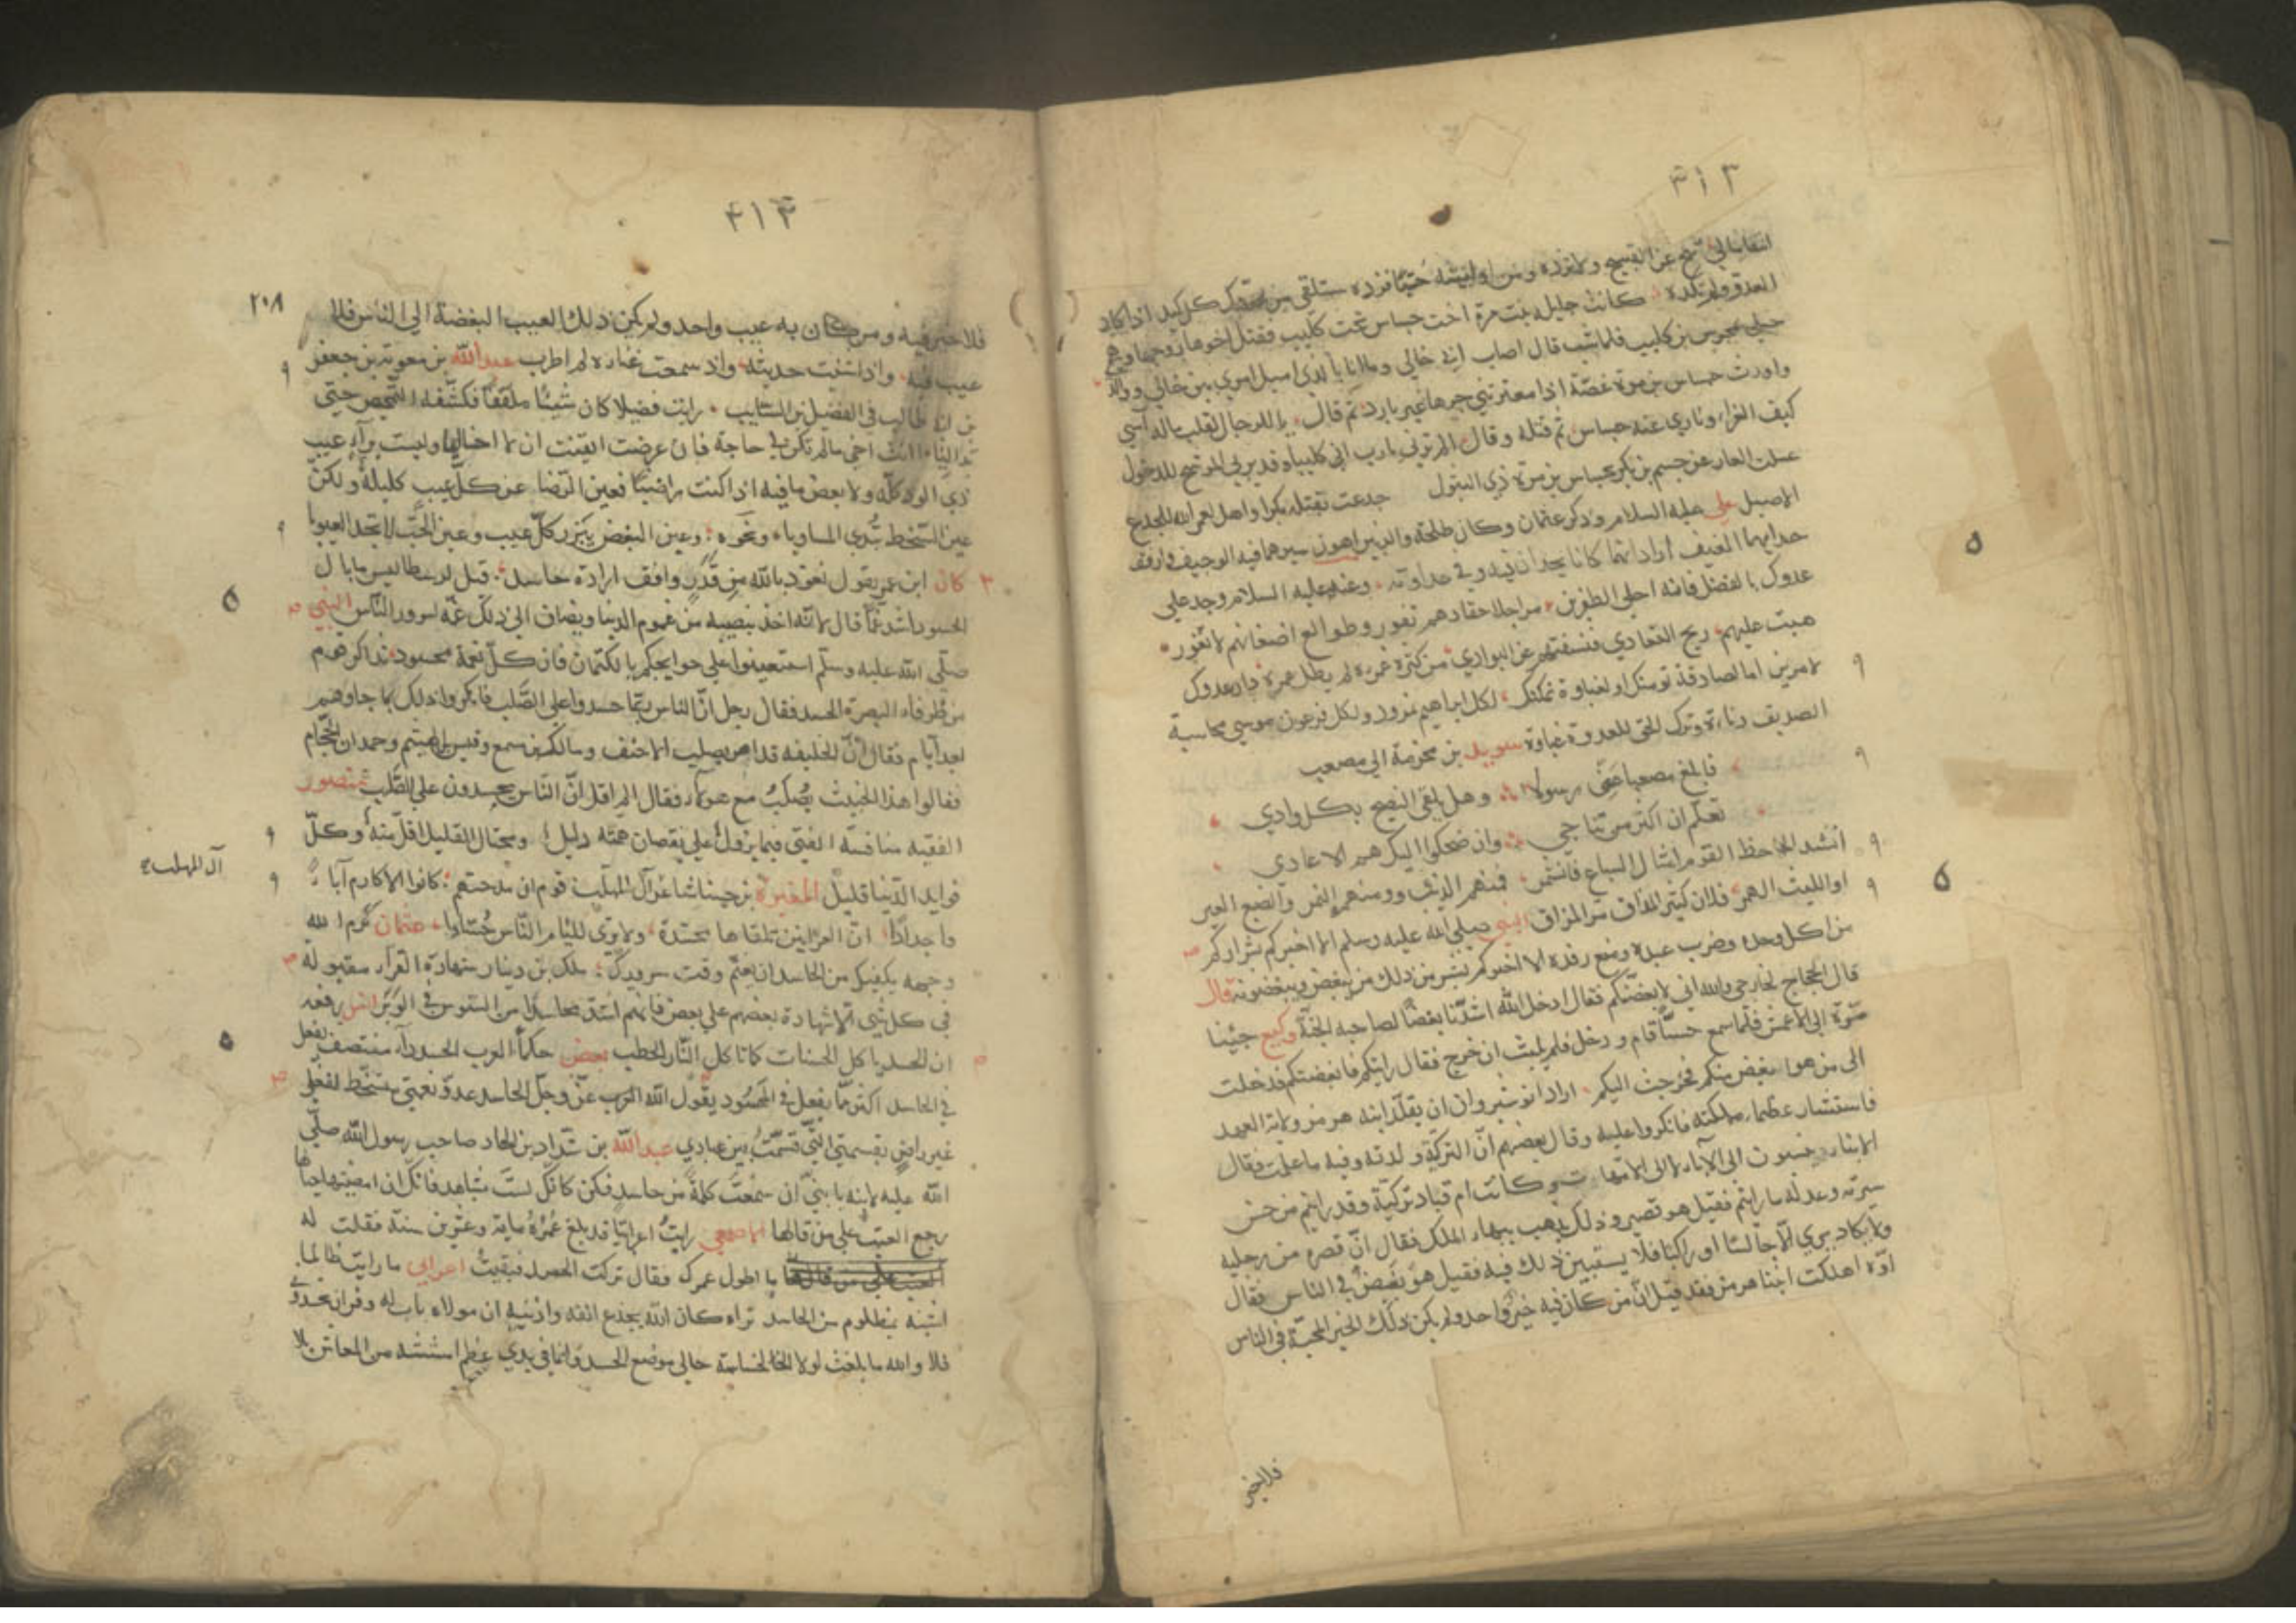 ٤١٣
العدو
كانت جليلة بنت مرة اخت جساس تحت كليب فقتل اخوها زوجها وهي
حبلى بهجرس بن كليب فلما شب قال اصاب ابي خالي وما انا بالذي اميل امري بين خالي ووالدي
واورث جساس بن مرة غصة اذا ما اعترتني حرها غير بارد ثم قال يا للرجال لقلب ماله آسي
كيف العزاء وثاري عند جساس ثم قتله وقال الم ترني ثارت ابي كليبا وقد يرجى المرشح للذحول
غسلت العار عن جشم بن بكر بجساس بن مرة ذي البتول جدعت بقتله بكرا واهل لعمر الله للجدع
الاصيل علي عليه السلام وذكر عثمان وكان طلحة والزبير اهون سيرهما فيه الوجيف وارفق
حدايهما العنيف اراد انهما كانا يجدان فيه وفي عداوته وعنه عليه السلام وجد على
عدوك بالفضل فانه احلى الظفرين مراجل احقادهم تفور وطوالع اضغانهم لا تغور
هبت عليهم ريح التعادي فنسفتهم عن البوادي من كثرة غمزه لم يطل عمره دار عدوك
لامرين اما لصداقة تومنك او لغباوة تمكنك لكل ابراهيم نمرود ولكل فرعون موسى محاسبة
الصديق دناءة وترك الحق للعدو غباوة سويد بن مخرمة الى مصعب
فابلغ مصعبا عني رسولا وهل يلقى النصيح بكل وادي
تعلم ان اكثر من تناجي وان ضحكوا اليك هم الاعادي
انشد الجاحظ القوم امثال السباع فانشمر فمنهم الذيب ومنهم النمر والضبع العير
او الليث الهمر فلان كثير المذاق مر المزاق النبي صلى الله عليه وسلم الا اخبركم بشراركم
من اكل وحده وضرب عبده ومنع رفده الا اخبركم بشر من ذلك من يبغض ويبغضونه قال
قال الحجاج لخارجي والله اني لابغضكم فقال ادخل الله اشدنا بغضا لصاحبه الجنة وكيع جئنا
مرة الى الاعمش فلما سمع حسنا قام ودخل فلم يلبث ان خرج فقال رايتكم فابغضتكم فدخلت
الى من هو ابغض منكم فخرجت اليكم اراد انوشيروان ان يقلد ابنه هرمز ولاية العهد
فاستشار عظماء مملكته فانكروا عليه وقال بعضهم ان التركية ولدته وفيه ما علمت فقال
الابناء ينسبون الى الآباء لا الى الامهات وكانت ام قباد تركية وقد رايتم من حسن
سيرته وعدله ما رايتم فقيل هو قصير وذلك يذهب ببهاء الملك فقال ان قصره من رجليه
ولا يكاد يرى الا جالسا او راكبا فلا يستبين ذلك فيه فقيل هو بغيض في الناس فقال
اوه اهلكت ابنا هرمز فقد قيل ان من كان فيه خير واحد ولم يكن ذلك الخير المحبة في الناس
فلا خير
٤١٤
٢٠٨
فلا خير فيه ومن كان به عيب واحد ولم يكن ذلك العيب البغضة الى الناس فلا
عيب فيه واذا شنيت حديثه واذ سمعت غناءه لم اطرب عبد الله بن معوية بن جعفر
بن ابي طالب في الفضيل بن السائب رايت فضيلا كان شيئا ملففا فكشفه التمحيص حتى
بدا ليا اانت اخي مالم تكن لي حاجة فان عرضت ايقنت ان لا اخا ليا ولست براء عيب
ذي الود كله ولا بعض ما فيه اذا كنت راضيا فعين الرضا عن كل عيب كليلة ولكن
عين السخط تبدي المساويا ونحوه وعين البغض تبرز كل عيب وعين الحب لا تجد العيوبا
كان ابن عمر يقول نعوذ بالله من قدر وافق ارادة حاسد قيل لارسطاطاليس ما بال
الحسود اشد غما قال لانه اخذ بنصيبه من غموم الدنيا ويضاف الى ذلك غمه لسرور الناس النبي
صلى الله عليه وسلم استعينوا على حوايجكم بالكتمان فان كل نعمة محسود تذاكر قوم
من ظرفاء البصرة الحسد فقال رجل ان الناس ربما حسدوا على الصلب فانكروا ذلك ثم جاءهم
بعد ايام فقال ان الخليفة قد امر بصلب الاحنف ومالك بن مسمع وقيس بن الهيثم وحمدان الحجام
فقالوا هذا الخبيث يصلب مع هولاء فقال الم اقل ان الناس يحسدون على الصلب منصور
الفقيه منافسة الفتى فيما يزول على نقصان همته دليل ومختال القليل اقل منه وكل
فوايد الدنيا قليل المغيرة بن حبناء شاعر آل المهلب قوم ان مدحتهم كانوا الاكارم آباء
آل المهلب
واجدادا ان العرانين تلقاها محسدة ولا ترى للئام الناس حسادا عثمان كرم الله
وجهه يكفيك من الحاسد ان يغتم وقت سرورك ملك بن دينار شهادة القراء مقبولة
في كل شي الا شهادة بعضهم على بعض فانهم اشد تحاسدا من السوس في الوبر انس رفعه
ان الحسد ياكل الحسنات كما تاكل النار الحطب بعض حكماء العرب الحسد داء منصف يفعل
في الحاسد اكثر مما يفعل في المحسود يقول الله عز وجل الحاسد عدو نعمتي متسخط لفعلي
غير راض بقسمتي التي قسمت بين عبادي عبد الله بن شداد بن الهاد صاحب رسول الله صلى
الله عليه لابنه يا بني ان سمعت كلمة من حاسد فكن كانك لست بشاهد فانك ان امضيتها حيالها
رجع العيب على من قالها الاصمعي رايت اعرابيا قد بلغ عمره ماية وعشرين سنة فقلت له
ما اطول عمرك فقال تركت الحسد فبقيت اعرابي ما رايت ظالما
اشبه بمظلوم من الحاسد تراه كان الله يجدع انفه واذنيه ان مولاه باب له وفر
فلا والله ما بلغت